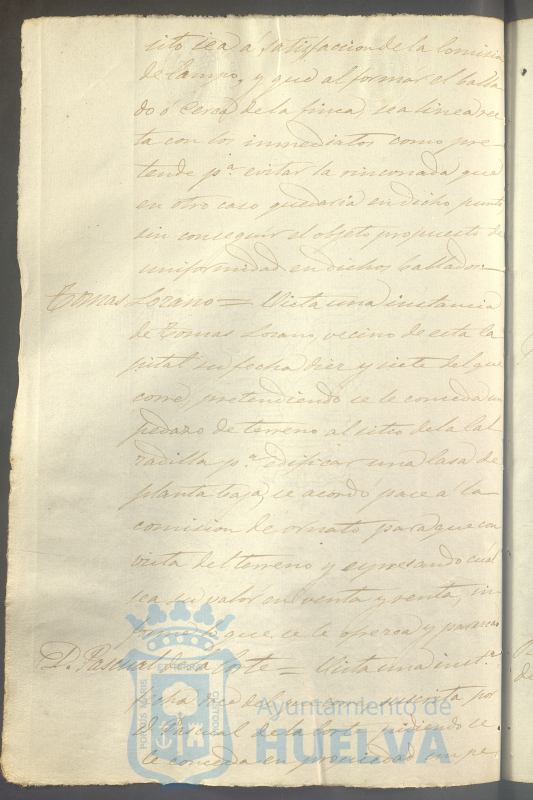 sito sea a satisfaccion de la Comision
de Campo, y que al formar el balla
do ó Cerca de la finca, sea linea rec
ta con los inmediatos como pre-
tende p.ª evitar la rinconada que
en otro caso quedaria en dicho punto
sin conseguir el objeto propuesto de
uniformidad en dichos ballados.=
Tomas Lozano = Vista una instancia
de Tomas Lozano, vecino de esta Ca
pital su fecha diez y siete del que
corre, pretendiendo se le conceda un
pedazo de terreno al sitio de la Cal
zadilla p.ª edificar una Casa de
planta baja, se acordó pase á la
comision de ornato para que con
vista del terreno y expresando cual
sea su valor en venta y renta, in
forme lo que se le ofrezca y parezca
D. Pascual de la Corte = Vista una inst.ª
fecha del suscrita por
D. Pascual de la Corte pidiendo se
le conceda en propiedad un pe
PORTUS MARIS ET TERRAE CUSTODIA
Ayuntamiento de
HUELVA